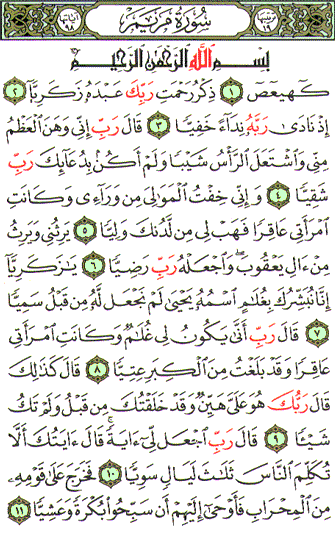 ترتيبها ١٩ سورة مريم آياتها ٩٨
بسم الله الرحمن الرحيم
كٓهيعٓصٓ ١ ذِكْرُ رَحْمَتِ رَبِّكَ عَبْدَهُۥ زَكَرِيَّآ ٢
إِذْ نَادَىٰ رَبَّهُۥ نِدَآءً خَفِيًّا ٣ قَالَ رَبِّ إِنِّى وَهَنَ ٱلْعَظْمُ
مِنِّى وَٱشْتَعَلَ ٱلرَّأْسُ شَيْبًا وَلَمْ أَكُنۢ بِدُعَآئِكَ رَبِّ
شَقِيًّا ٤ وَإِنِّى خِفْتُ ٱلْمَوَٰلِىَ مِن وَرَآءِى وَكَانَتِ
ٱمْرَأَتِى عَاقِرًا فَهَبْ لِى مِن لَّدُنكَ وَلِيًّا ٥ يَرِثُنِى وَيَرِثُ
مِنْ ءَالِ يَعْقُوبَ ۖ وَٱجْعَلْهُ رَبِّ رَضِيًّا ٦ يَٰزَكَرِيَّآ
إِنَّا نُبَشِّرُكَ بِغُلَٰمٍ ٱسْمُهُۥ يَحْيَىٰ لَمْ نَجْعَل لَّهُۥ مِن قَبْلُ سَمِيًّا
٧ قَالَ رَبِّ أَنَّىٰ يَكُونُ لِى غُلَٰمٌ وَكَانَتِ ٱمْرَأَتِى
عَاقِرًا وَقَدْ بَلَغْتُ مِنَ ٱلْكِبَرِ عِتِيًّا ٨ قَالَ كَذَٰلِكَ
قَالَ رَبُّكَ هُوَ عَلَىَّ هَيِّنٌ وَقَدْ خَلَقْتُكَ مِن قَبْلُ وَلَمْ تَكُ
شَيْـًٔا ٩ قَالَ رَبِّ ٱجْعَل لِّىٓ ءَايَةً ۚ قَالَ ءَايَتُكَ أَلَّا
تُكَلِّمَ ٱلنَّاسَ ثَلَٰثَ لَيَالٍ سَوِيًّا ١٠ فَخَرَجَ عَلَىٰ قَوْمِهِۦ
مِنَ ٱلْمِحْرَابِ فَأَوْحَىٰٓ إِلَيْهِمْ أَن سَبِّحُوا۟ بُكْرَةً وَعَشِيًّا ١١